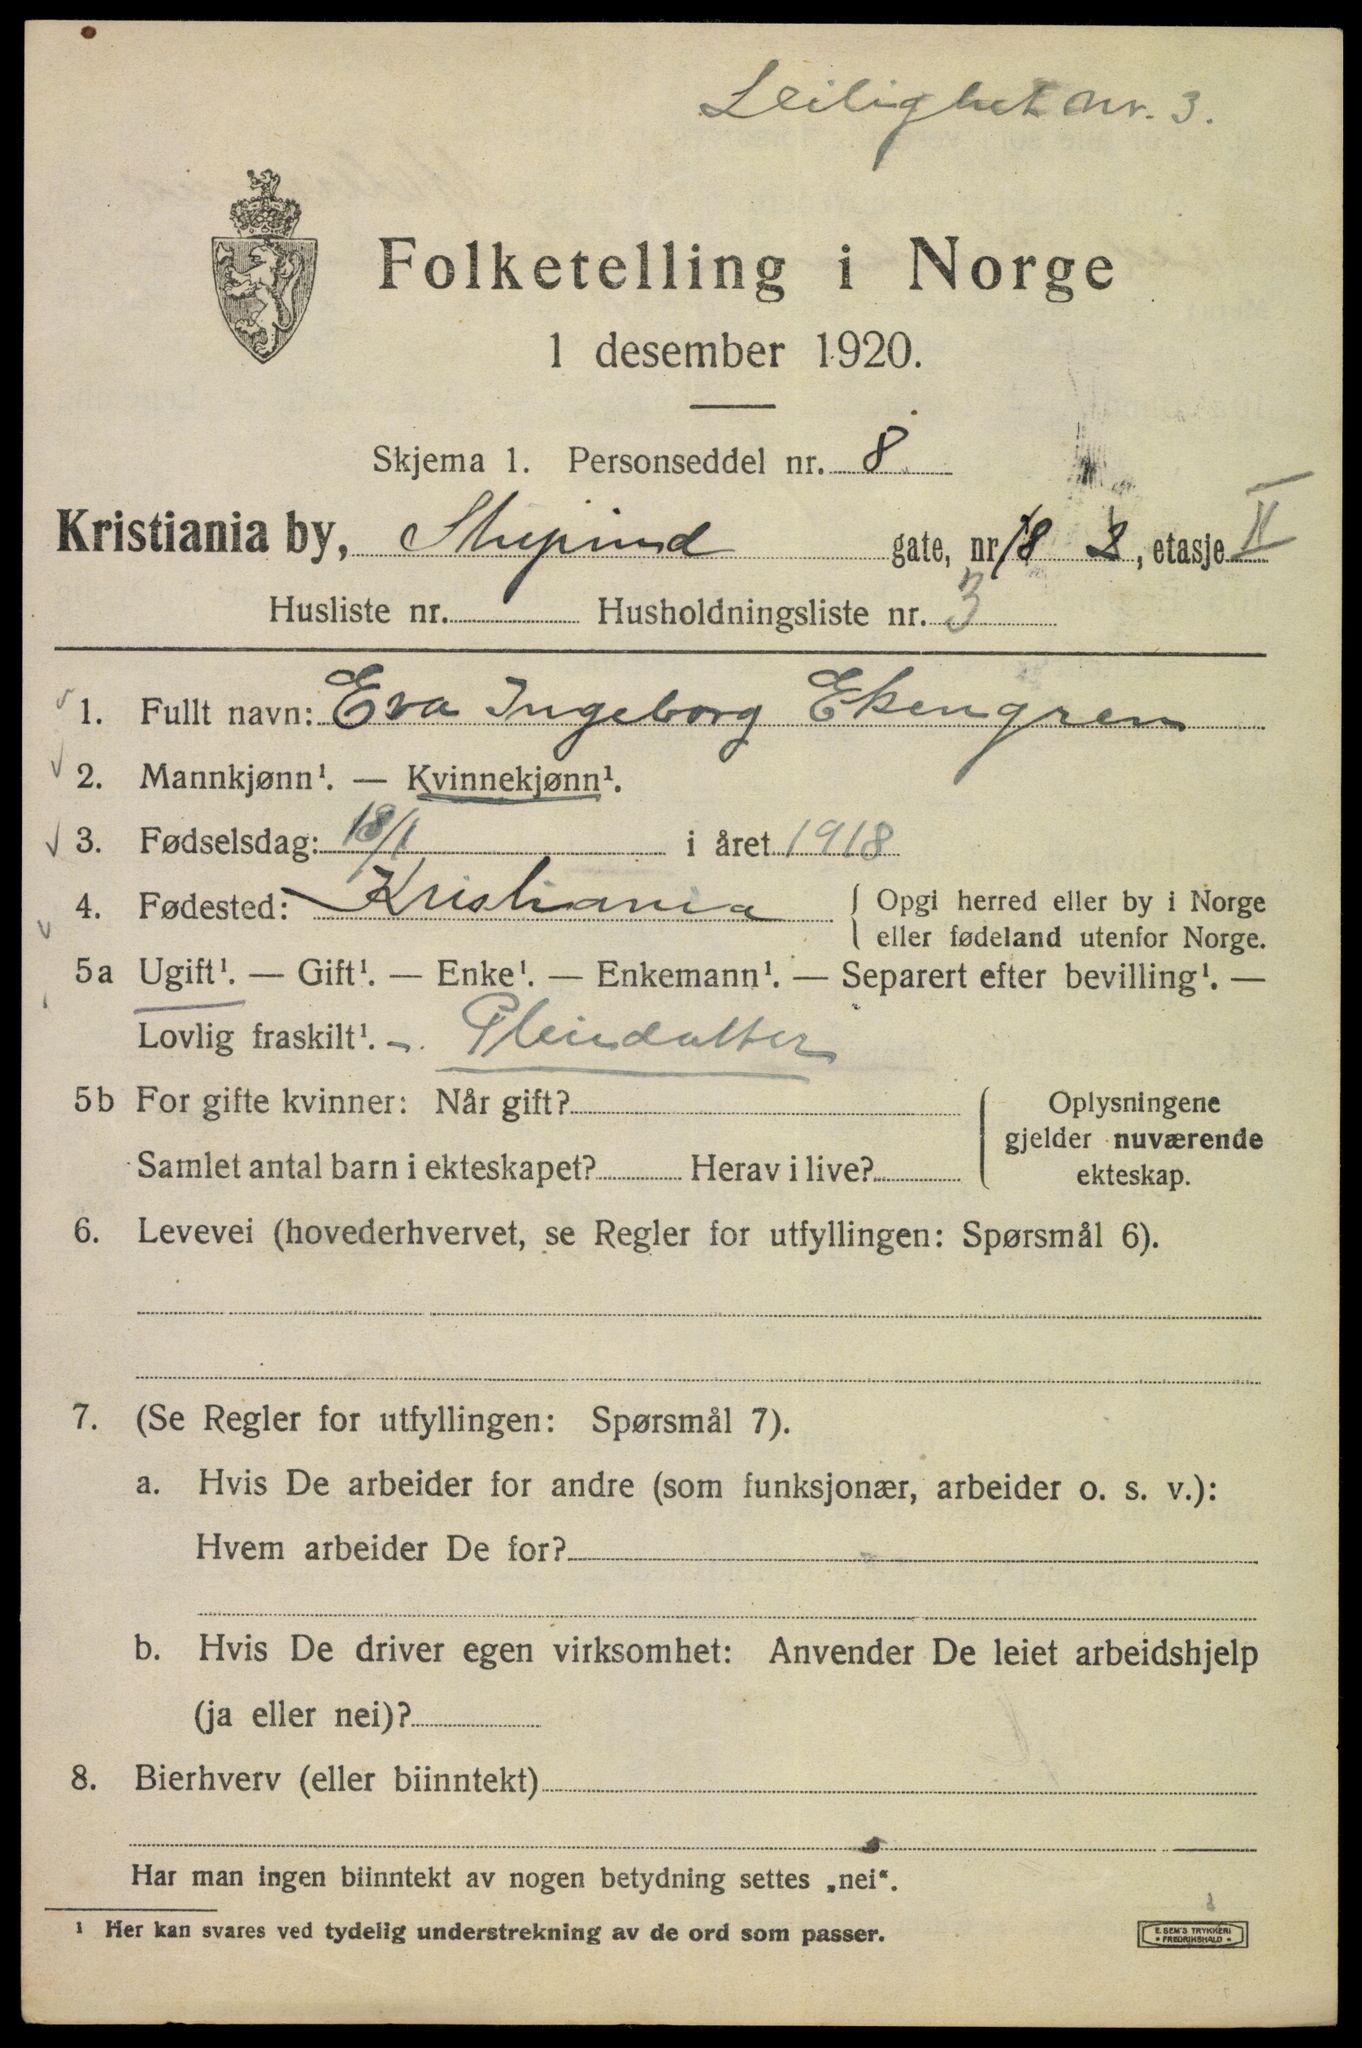 Leilighet nr. 3.
Folketelling i Norge
1 desember 1920.
Skjema 1. Personseddel nr. 8
Kristiania by, gate, nr. 18 , etasje II
Husliste nr. Husholdningsliste nr. 3
1. Fullt navn: Eva Ingeborg Ekengren
2. Mannkjønn¹. — Kvinnekjønn¹.
3. Fødselsdag: 18/1 i året 1918
4. Fødested: Kristiania { Opgi herred eller by i Norge
eller fødeland utenfor Norge.
5a Ugift¹. — Gift¹. — Enke¹. — Enkemann¹. — Separert efter bevilling¹. —
Lovlig fraskilt¹. — Pleiedatter
5b For gifte kvinner: Når gift?
Samlet antal barn i ekteskapet? Herav i live?
{ Oplysningene
gjelder nuværende
ekteskap.
6. Levevei (hovederhvervet, se Regler for utfyllingen: Spørsmål 6).
7. (Se Regler for utfyllingen: Spørsmål 7).
a. Hvis De arbeider for andre (som funksjonær, arbeider o. s. v.):
Hvem arbeider De for?
b. Hvis De driver egen virksomhet: Anvender De leiet arbeidshjelp
(ja eller nei)?
8. Bierhverv (eller biinntekt)
Har man ingen biinntekt av nogen betydning settes „nei“.
¹ Her kan svares ved tydelig understrekning av de ord som passer.
E. SEM'S TRYKKERI
• FREDRIKSHALD •